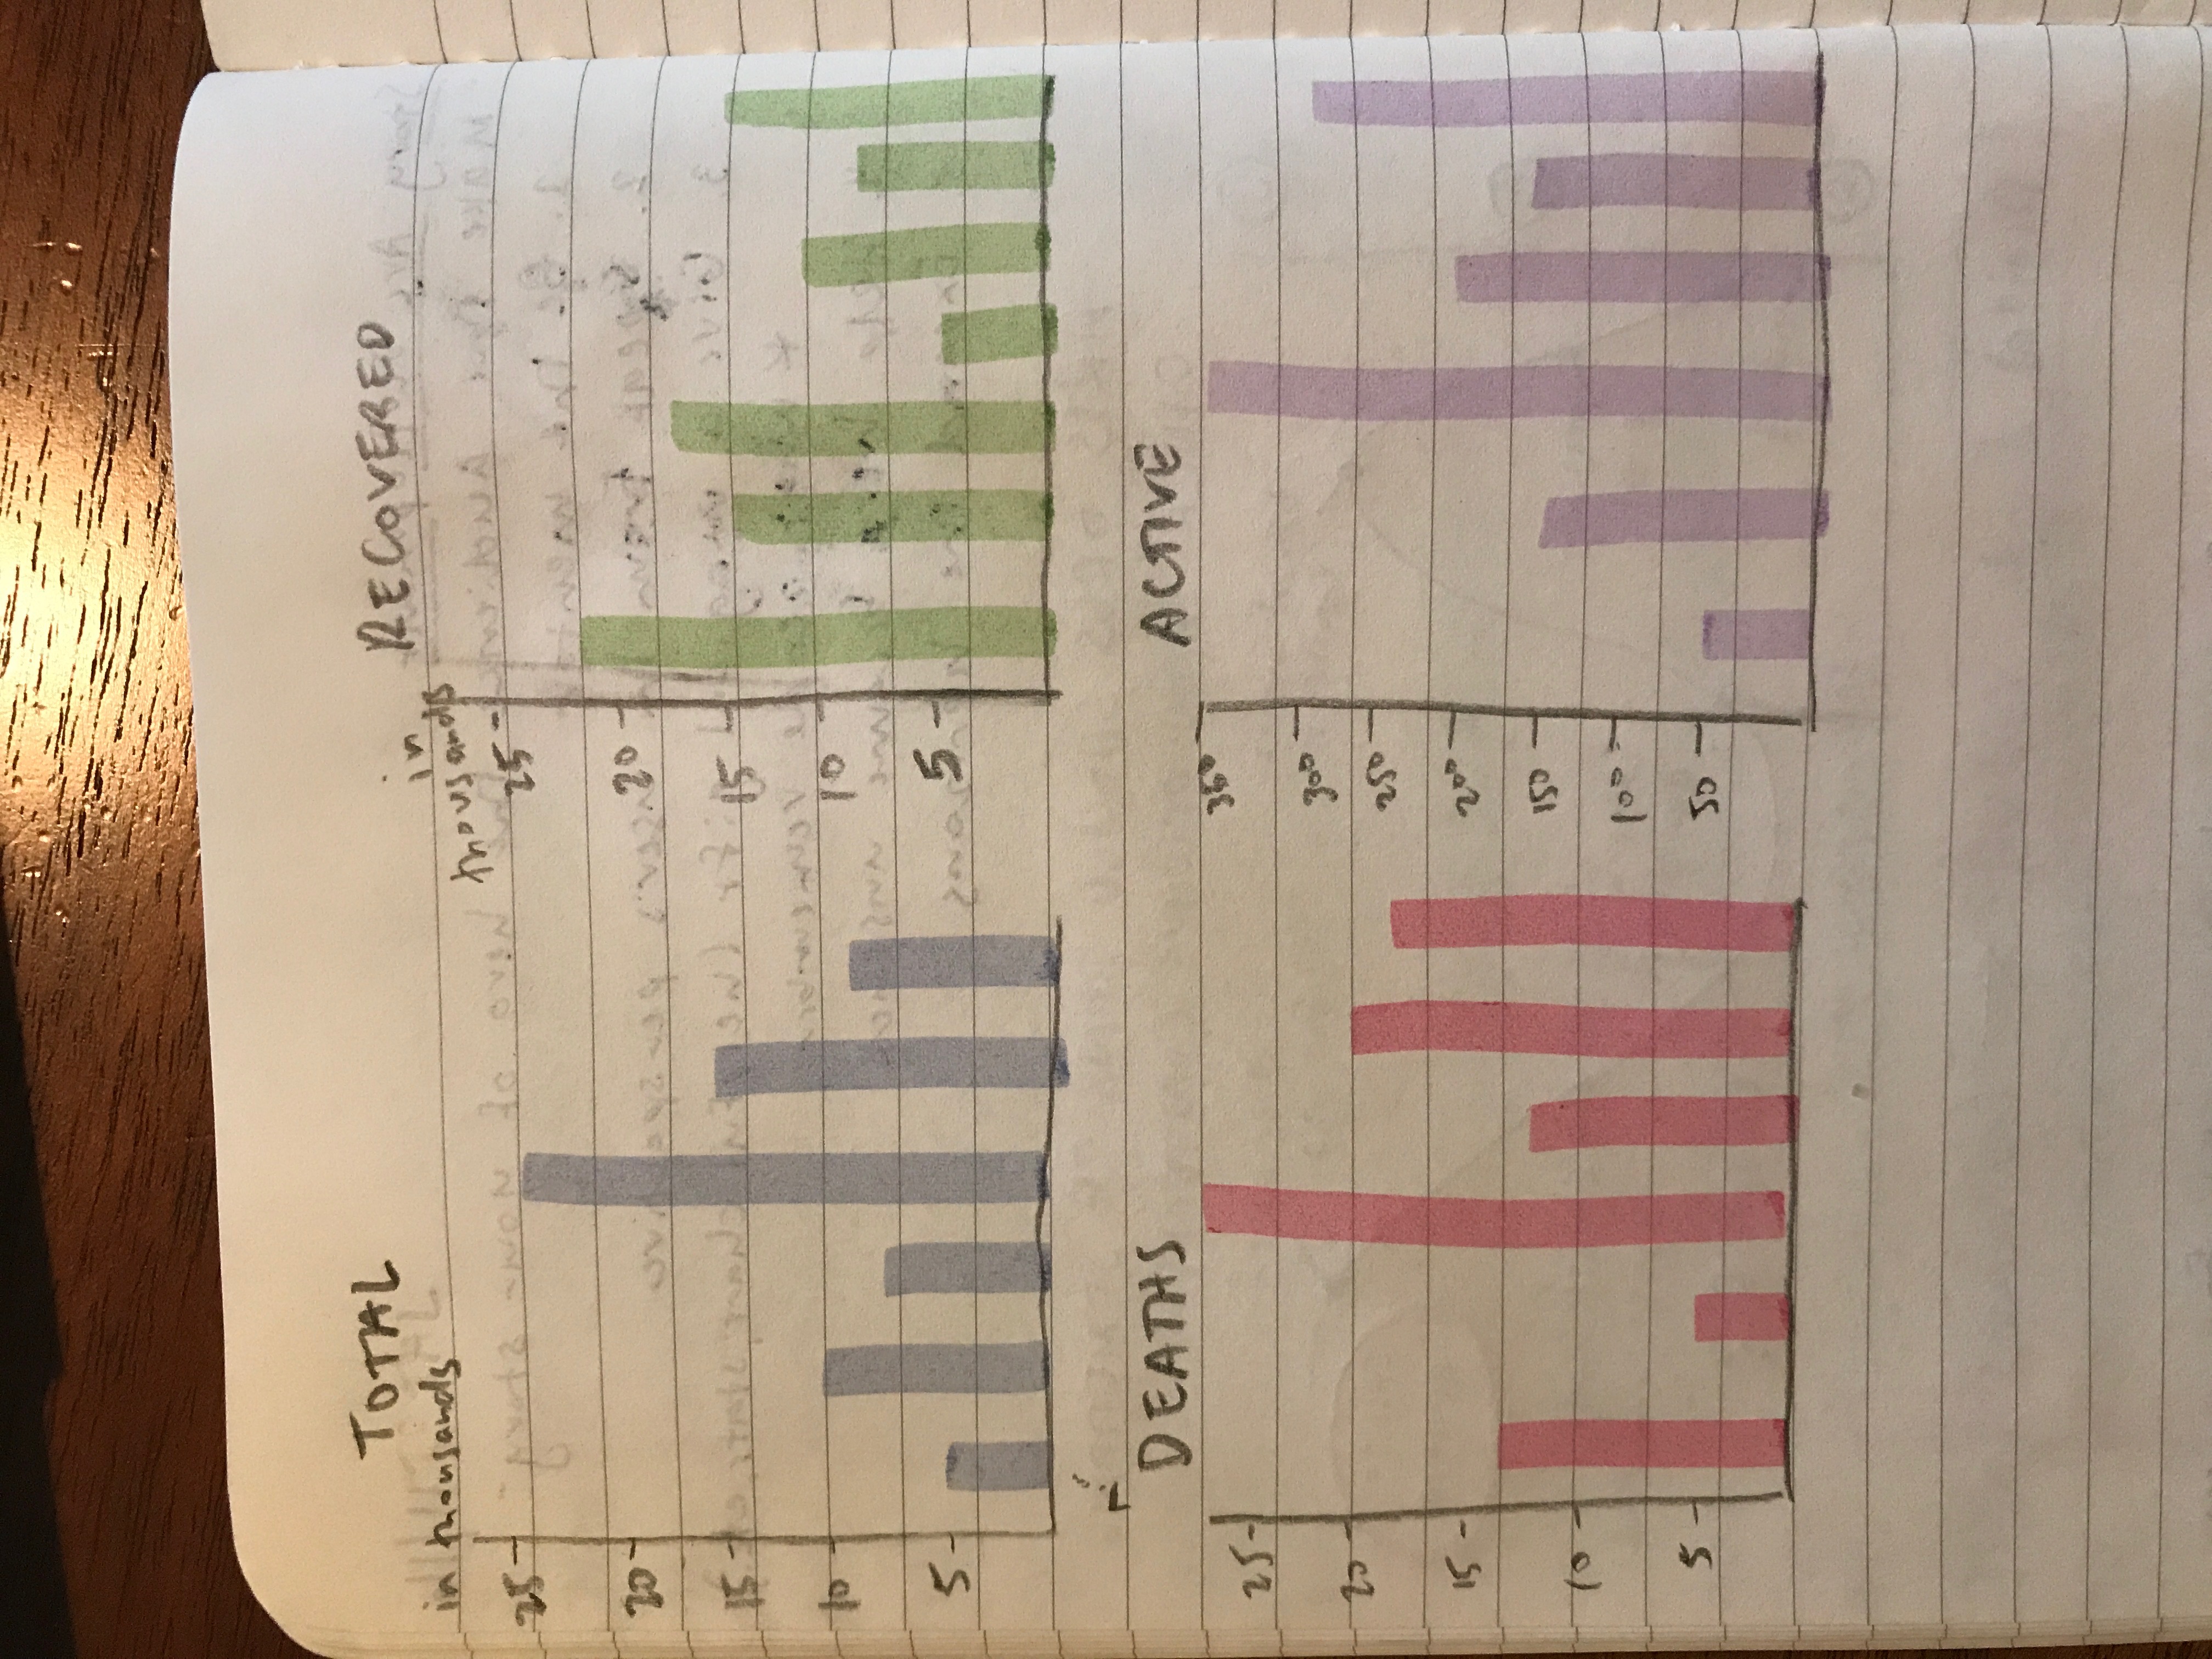 TOTAL
in thousands
25
20
15
10
5
RECOVERED
in
thousands
25
20
15
10
5
DEATHS
25
20
15
10
5
ACTIVE
350
300
250
200
150
100
50